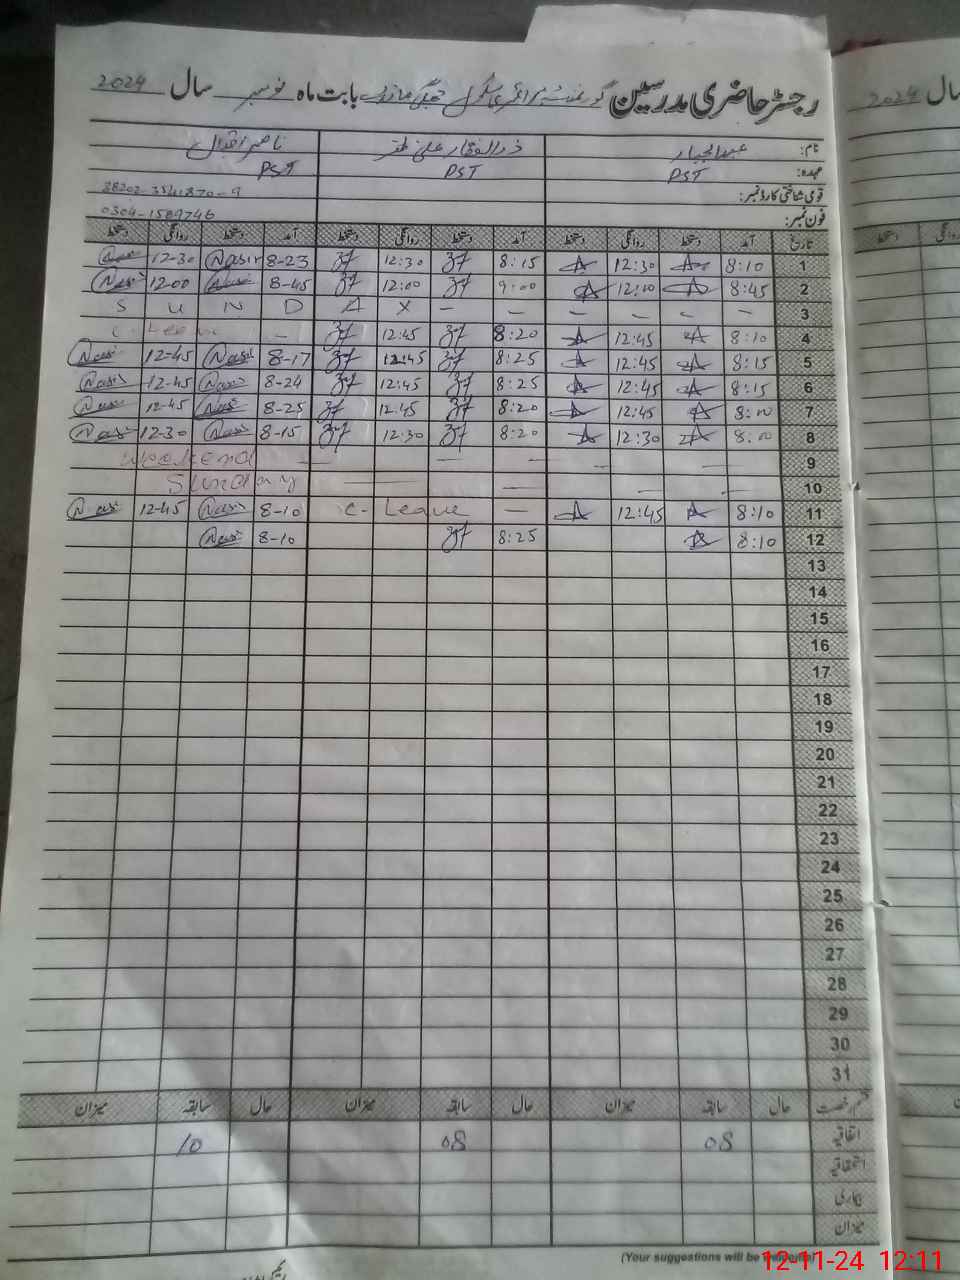 رجسٹر حاضری مدرسین گورنمنٹ پرائمری سکول بابت ماہ نومبر سال 2024
نام: عبدالجبار ذوالفقار علی ظفر ناصر اقبال
عہدہ: PST PST PST
قومی شناختی کارڈ نمبر:
فون نمبر: 0304-1589746
تاریخ آمد دستخط روانگی دستخط آمد دستخط روانگی دستخط آمد دستخط روانگی دستخط
12-30 Nasir 8-23 12:30 8:15 12:30 8:10 1
12-00 8-45 12:00 9:00 12:00 8:45 2
S U N D A X – – – – – – 3
– 12:45 8:20 12:45 8:10 4
12-45 8-17 12:45 8:25 12:45 8:15 5
12-45 8-24 12:45 8:25 12:45 8:15 6
12-45 8-25 12:45 8:20 12:45 8:00 7
12-30 8-15 12:30 8:20 12:30 8:00 8
Weekend – – – – – 9
Sunday – – – – 10
12-45 8-10 C- Leave – 12:45 8:10 11
8-10 8:25 8:10 12
13
14
15
16
17
18
19
20
21
22
23
24
25
26
27
28
29
30
31
قسم رخصت حال سابقہ میزان حال سابقہ میزان حال سابقہ میزان
اتفاقیہ 08 08 10
استحقاقیہ
بیماری
میزان
(Your suggestions will be welcome)
12-11-24 12:11
2024 سال